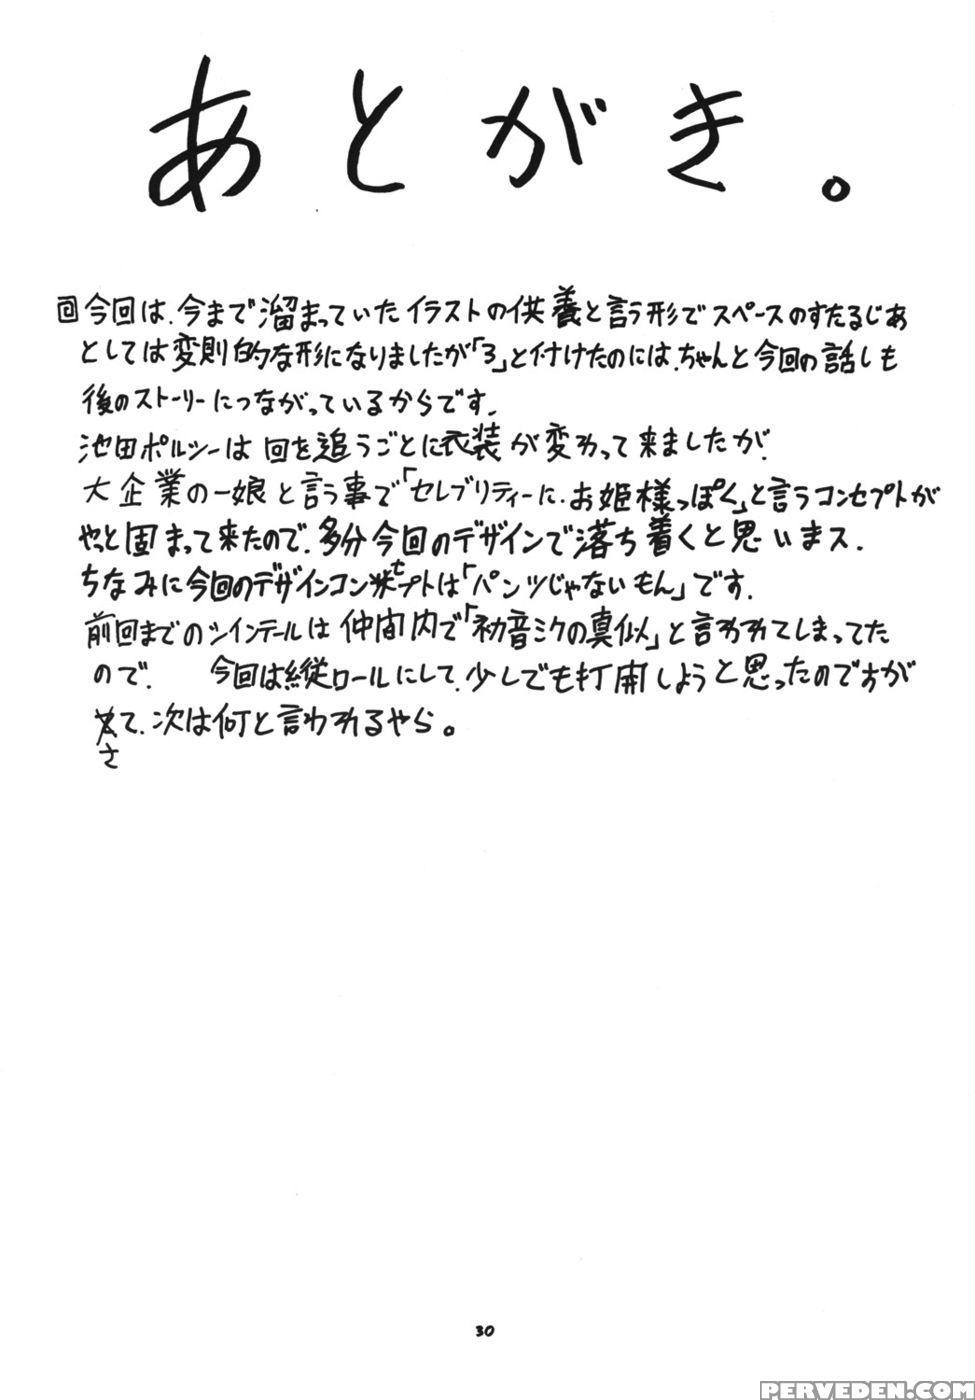 あとがき。
回今回は、今まで溜まっていたイラストの供養と言う形でスペースのすたるじあ
としては変則的な形になりましたが「3」と付けたのには、ちゃんと今回の話しも
後のストーリーにつながっているからです。
池田ポルシーは回を追うごとに衣装が変わって来ましたが、
大企業の一娘と言う事で「セレブリティーに、お姫様っぽく」と言うコンセプトが
やっと固まって来たので、多分今回のデザインで落ち着くと思いまス.
ちなみに今回のデザインコンセプトは「パンツじゃないもん」です.
前回までのツインテールは仲間内で「初音ミクの真似」と言われてしまってた
ので、 今回は縦ロールにして、少しでも打開しようと思ったのですが
さて、次は何と言われるやら。
30
PERVEDEN.COM